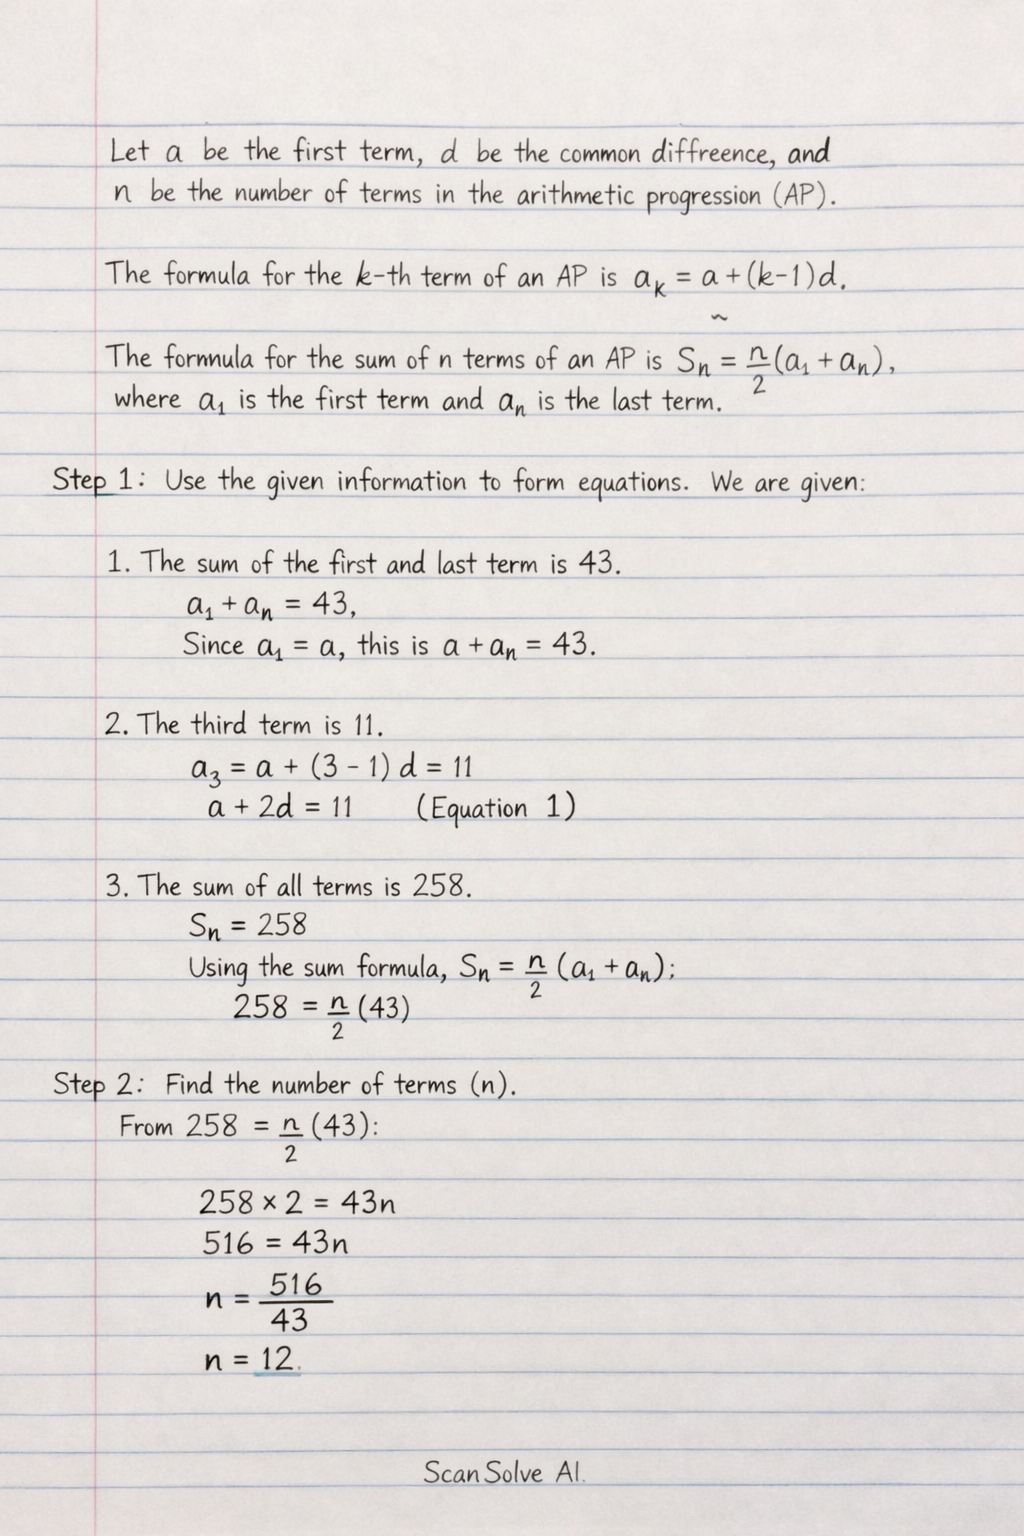 Let a be the first term, d be the common diffreence, and
n be the number of terms in the arithmetic progression (AP).
The formula for the k-th term of an AP is aₖ = a + (k-1)d.
~
The formnula for the sum of n terms of an AP is Sₙ = n/2 (a₁ + aₙ),
where a₁ is the first term and aₙ is the last term.
Step 1: Use the given information to form equations. We are given:
1. The sum of the first and last term is 43.
a₁ + aₙ = 43,
Since a₁ = a, this is a + aₙ = 43.
2. The third term is 11.
a₃ = a + (3 - 1) d = 11
a + 2d = 11 (Equation 1)
3. The sum of all terms is 258.
Sₙ = 258
Using the sum formula, Sₙ = n/2 (a₁ + aₙ);
258 = n/2 (43)
Step 2: Find the number of terms (n).
From 258 = n/2 (43):
258 × 2 = 43n
516 = 43n
n = 516/43
n = 12.
ScanSolve AI.